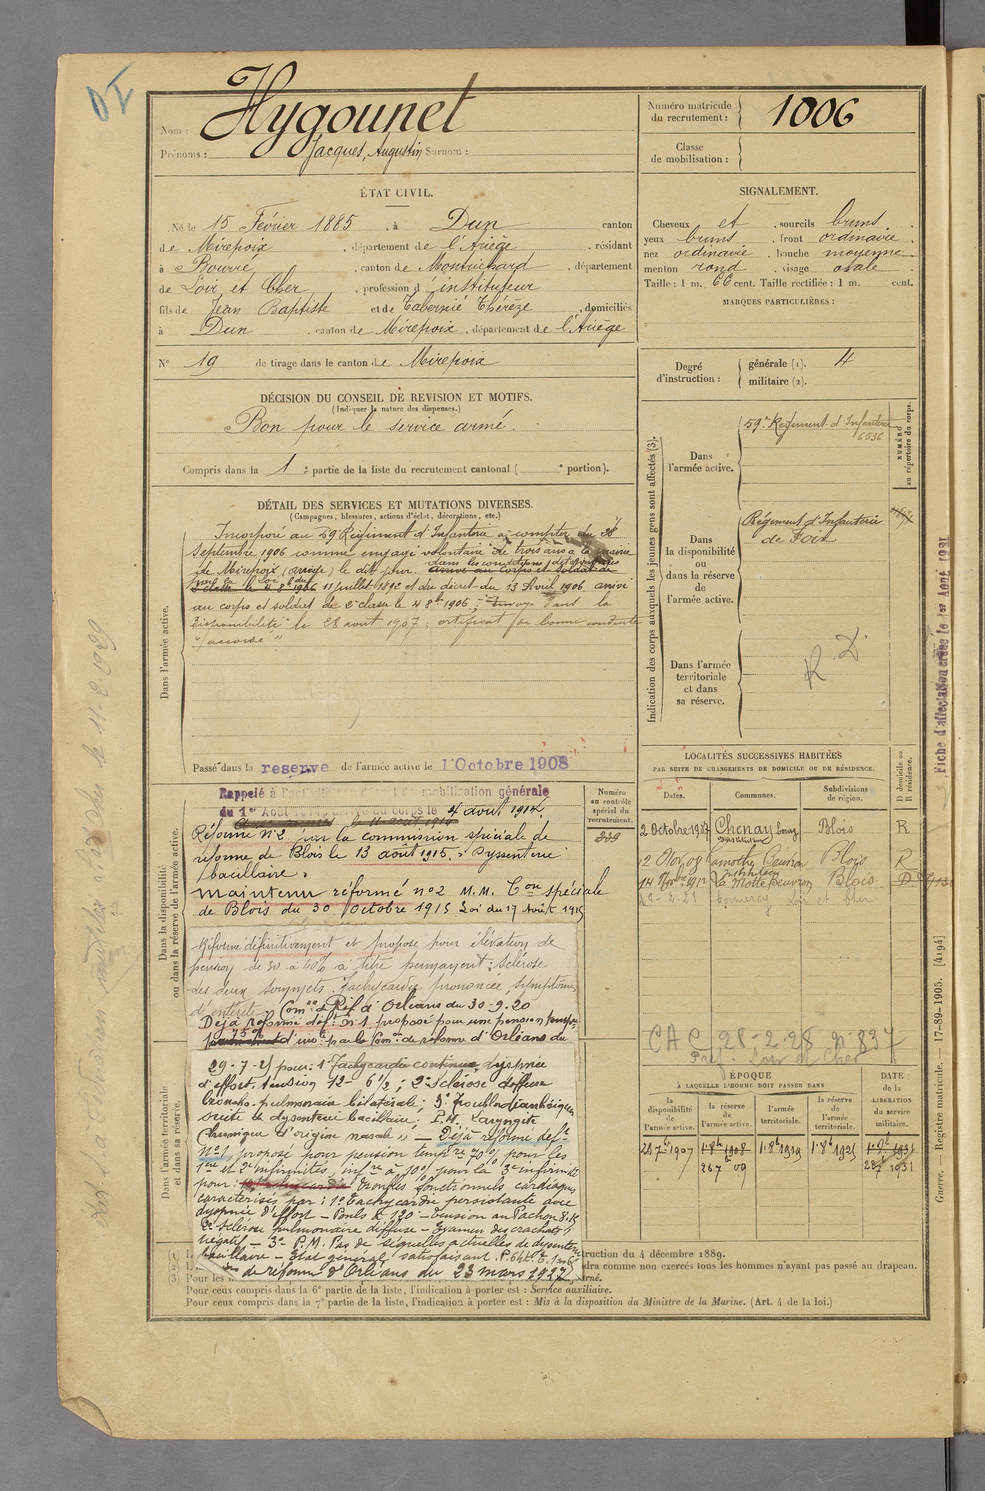 Nom : Hygounet
Prénoms : Jacques, Augustin Surnom :
Numéro matricule du recrutement : 1006
Classe de mobilisation :
ÉTAT CIVIL.
Né le 15 Février 1885 , à Dun canton
de Mirepoix , département de l'Ariège , résidant
à Bourré , canton de Montrichard , département
de Loir et Cher , profession d'instituteur
fils de Jean Baptiste et de Tabernié Thérèze , domiciliés
à Dun , canton de Mirepoix , département de l'Ariège
N° 19 de tirage dans le canton de Mirepoix
SIGNALEMENT.
Cheveux et , sourcils bruns ,
yeux bruns , front ordinaire ,
nez ordinaire , bouche moyenne
menton rond , visage ovale
Taille : 1 m. 66 cent. Taille rectifiée : 1 m. cent.
MARQUES PARTICULIÈRES :
Degré d'instruction : générale (1). 4
militaire (2).
DÉCISION DU CONSEIL DE REVISION ET MOTIFS.
(Indiquer la nature des dispenses.)
Bon pour le service armé.
Compris dans la 1e partie de la liste du recrutement cantonal ( e portion).
DÉTAIL DES SERVICES ET MUTATIONS DIVERSES.
(Campagnes, blessures, actions d'éclat, décorations, etc.)
Incorporé au 59 Régiment d'Infanterie à compter du
Septembre 1906 comme engagé volontaire de trois ans à la mairie
de Mirepoix (Ariège) le dit jour. dans les conditions
11 juillet 1892 et du décret du 13 Avril 1906, arrivé
au corps et soldat de 2e classe le 4 8bre 1906 ; Envoyé dans la
disponibilité le 28 aout 1907 ; certificat de bonne conduite
"accordé"
Dans l'armée active.
Passé dans la reserve de l'armée active le 1 Octobre 1908
Indication des corps auxquels les jeunes gens sont affectés (3).
Dans l'armée active.
59e Régiment d'Infanterie
6536
NUMÉRO au répertoire du corps.
Dans la disponibilité ou dans la réserve de l'armée active.
Régiment d'Infanterie
de Foix
Dans l'armée territoriale et dans sa réserve.
R D
LOCALITÉS SUCCESSIVES HABITÉES
PAR SUITE DE CHANGEMENTS DE DOMICILE OU DE RÉSIDENCE.
Dates. Communes. Subdivisions de région. D domicile ou R résidence.
2 Octobre 1907 Chenay Blois R
12 Nov 08 Lamotte Beuvron Blois R
14 Novbre 1912 La Motte Beuvron Blois D
Loir et Cher
CAC 28-2-28 n° 837
Préf. Loir et Cher
Dans la disponibilité ou dans la réserve de l'armée active.
Numéro au contrôle spécial du recrutement.
239
Rappelé à l'activité mobilisation générale
du 1er Août arrivé au corps le 4 aout 1914
Réformé N°2 par la commission spéciale de
réforme de Blois le 13 août 1915. Dyssenterie
bacillaire.
Maintenu réformé n°2 M.M. Con spéciale
de Blois du 30 Octobre 1915 Loi du 17 Août 1915
Réformé définitivement et proposé pour élévation de
pension de 30 à 40% à titre permanent : sclérose
des deux sommets. Tachycardie prononcée, symptômes
d'entérite, Comon de Réf d'Orléans du 30-9-20
Déjà réformé déf. N°1 proposé pour une pension
par la Comon de réforme d'Orléans du
29-7-21 pour : 1° Tachycardie continue, dyspnée
d'effort, tension 12 - 6 1/2 ; 2° Sclérose diffuse
broncho-pulmonaire bilatérale ; 3° Troubles
suite de dysenterie bacillaire ; P.M. Laryngite
chronique d'origine nasale » — Déjà réformé déft
N°1, proposé pour pension tempre 70%, pour les
1re et 2e infirmités, infre à 10% pour la 3e infirmité
pour : troubles fonctionnels cardiaques
caractérisés par : 1° Tachycardie persistante avec
dyspnée d'effort - Pouls à 120 - Tension au Pachon
2° Sclérose pulmonaire diffuse - Examen des crachats
négatif - 3° P.M. Pas de séquelles actuelles de dysenterie
bacillaire - Etat général satisfaisant.
de réforme d'Orléans du 23 mars 1927
Dans l'armée territoriale et dans sa réserve.
ÉPOQUE
À LAQUELLE L'HOMME DOIT PASSER DANS
la disponibilité de l'armée active. la réserve de l'armée active. l'armée territoriale. la réserve de l'armée territoriale.
DATE de la LIBÉRATION du service militaire.
1 8b 1908 1 8b 1919 1 8b 1925
struction du 4 décembre 1889.
dra comme non exercés tous les hommes n'ayant pas passé au drapeau.
Pour ceux compris dans la 6e partie de la liste, l'indication à porter est : Service auxiliaire.
Pour ceux compris dans la 7e partie de la liste, l'indication à porter est : Mis à la disposition du Ministre de la Marine. (Art. 4 de la loi.)
Guerre. — Registre matricule. — 17-89-1905. [4194]
Fiche d'affectation créée le 1er Août 1921